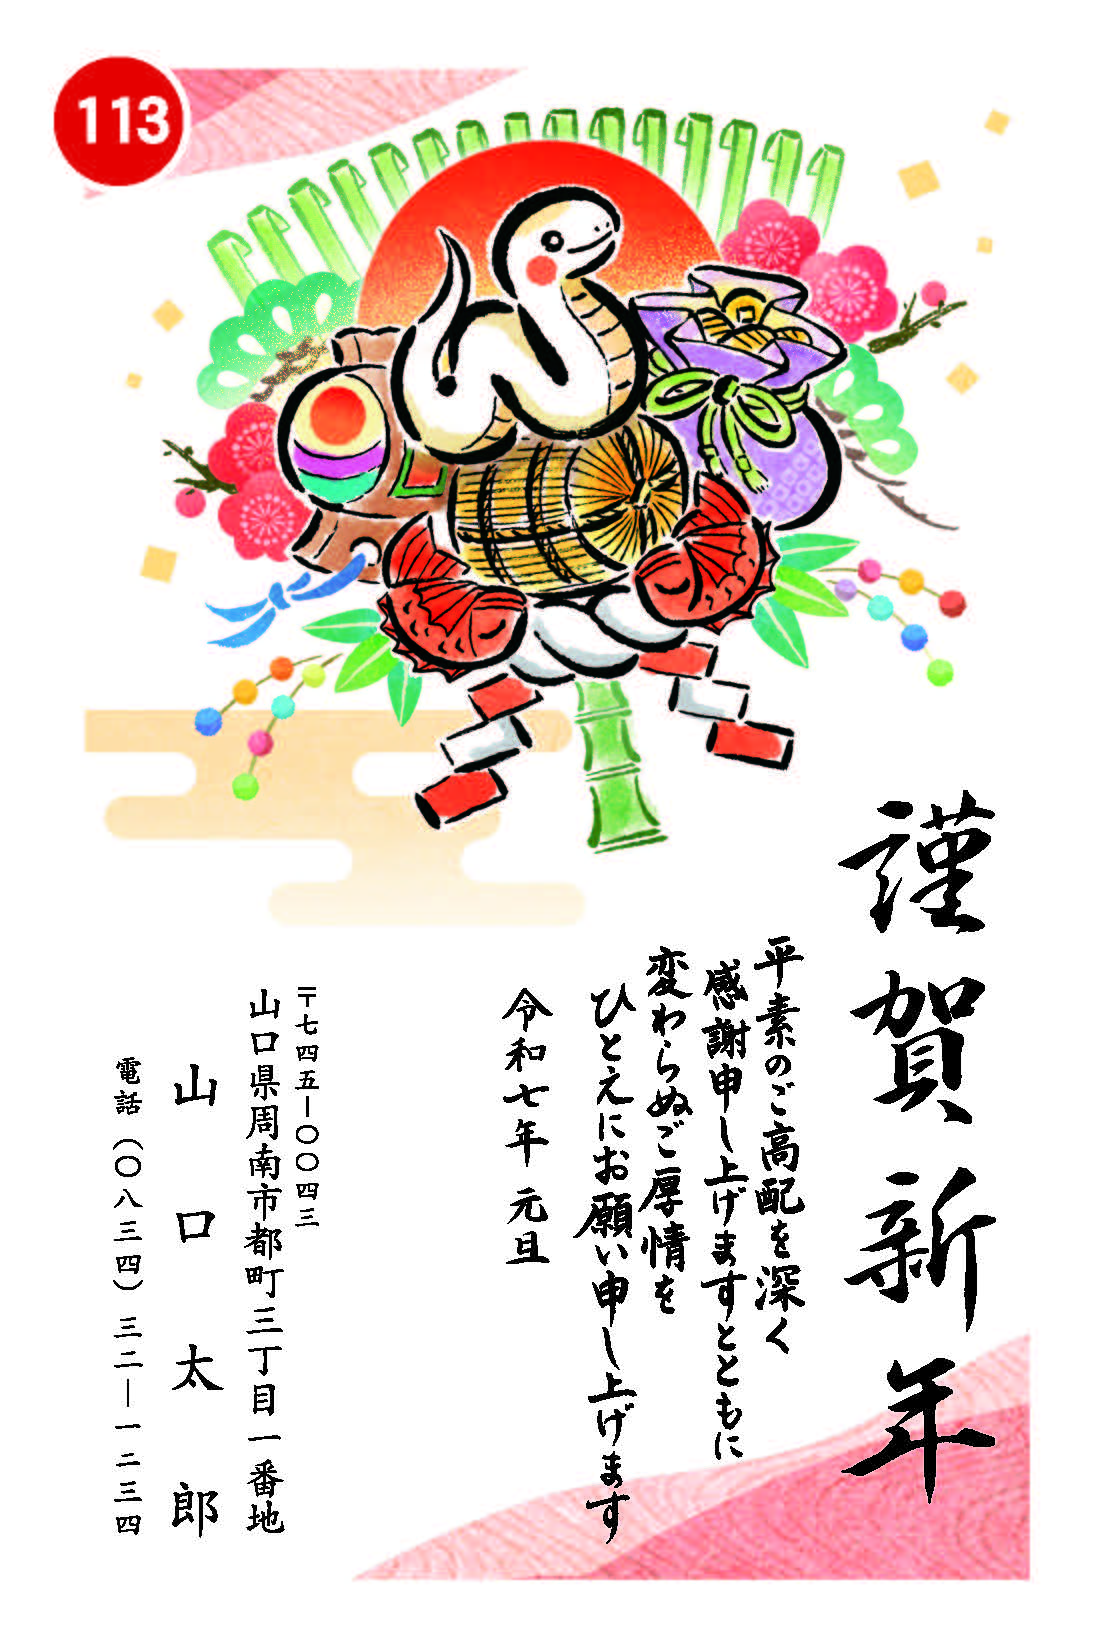 113
謹賀新年
平素のご高配を深く
感謝申し上げますとともに
変わらぬご厚情を
ひとえにお願い申し上げます
令和七年 元旦
〒七四五―〇〇四三
山口県周南市都町三丁目一番地
山口太郎
電話（〇八三四）三二―一二三四